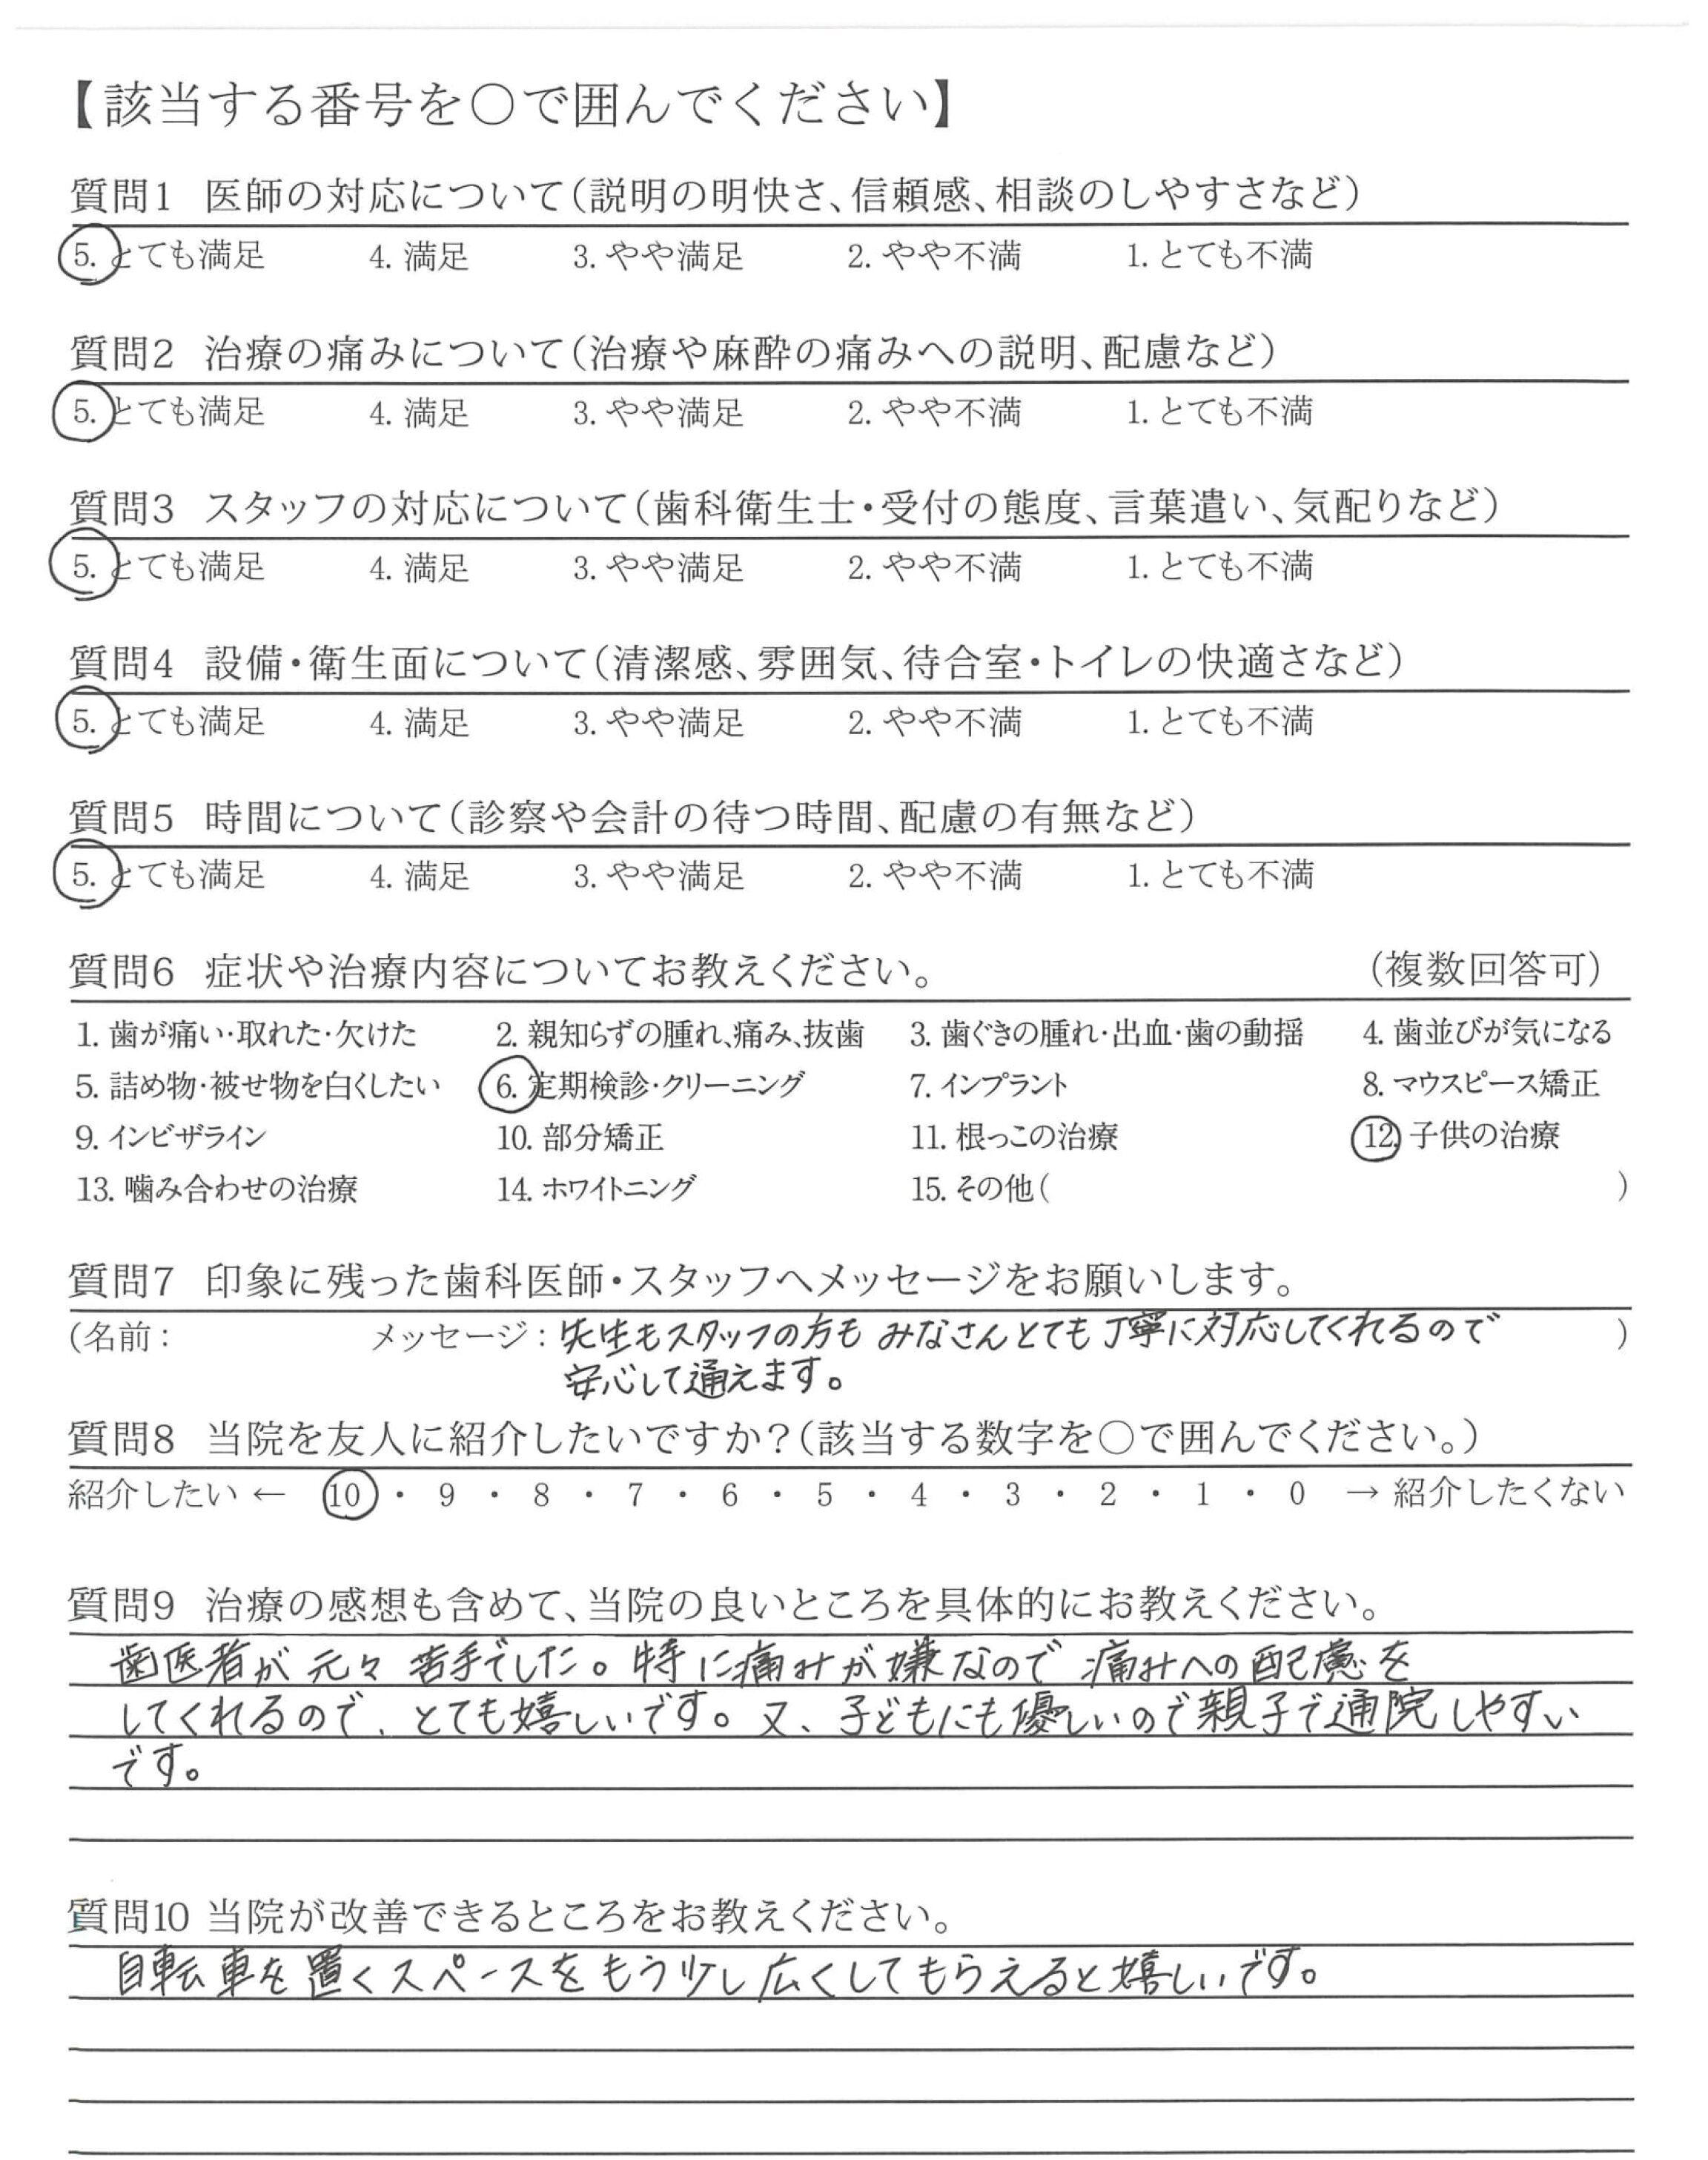 【該当する番号を○で囲んでください】
質問1 医師の対応について(説明の明快さ、信頼感、相談のしやすさなど)
5. とても満足 4. 満足 3. やや満足 2. やや不満 1. とても不満
質問2 治療の痛みについて(治療や麻酔の痛みへの説明、配慮など)
5. とても満足 4. 満足 3. やや満足 2. やや不満 1. とても不満
質問3 スタッフの対応について(歯科衛生士・受付の態度、言葉遣い、気配りなど)
5. とても満足 4. 満足 3. やや満足 2. やや不満 1. とても不満
質問4 設備・衛生面について(清潔感、雰囲気、待合室・トイレの快適さなど)
5. とても満足 4. 満足 3. やや満足 2. やや不満 1. とても不満
質問5 時間について(診察や会計の待つ時間、配慮の有無など)
5. とても満足 4. 満足 3. やや満足 2. やや不満 1. とても不満
質問6 症状や治療内容についてお教えください。 (複数回答可)
1. 歯が痛い・取れた・欠けた 2. 親知らずの腫れ、痛み、抜歯 3. 歯ぐきの腫れ・出血・歯の動揺 4. 歯並びが気になる
5. 詰め物・被せ物を白くしたい 6. 定期検診・クリーニング 7. インプラント 8. マウスピース矯正
9. インビザライン 10. 部分矯正 11. 根っこの治療 12. 子供の治療
13. 噛み合わせの治療 14. ホワイトニング 15. その他( )
質問7 印象に残った歯科医師・スタッフへメッセージをお願いします。
(名前： メッセージ：先生もスタッフの方も みなさんとても丁寧に対応してくれるので )
安心して通えます。
質問8 当院を友人に紹介したいですか?(該当する数字を○で囲んでください。)
紹介したい ← 10 ・ 9 ・ 8 ・ 7 ・ 6 ・ 5 ・ 4 ・ 3 ・ 2 ・ 1 ・ 0 → 紹介したくない
質問9 治療の感想も含めて、当院の良いところを具体的にお教えください。
歯医者が 元々 苦手でした。特に痛みが嫌なので 痛みへの配慮を
してくれるので、とても嬉しいです。又、子どもにも優しいので親子で通院しやすい
です。
質問10 当院が改善できるところをお教えください。
自転車を置くスペースをもう少し広くしてもらえると嬉しいです。